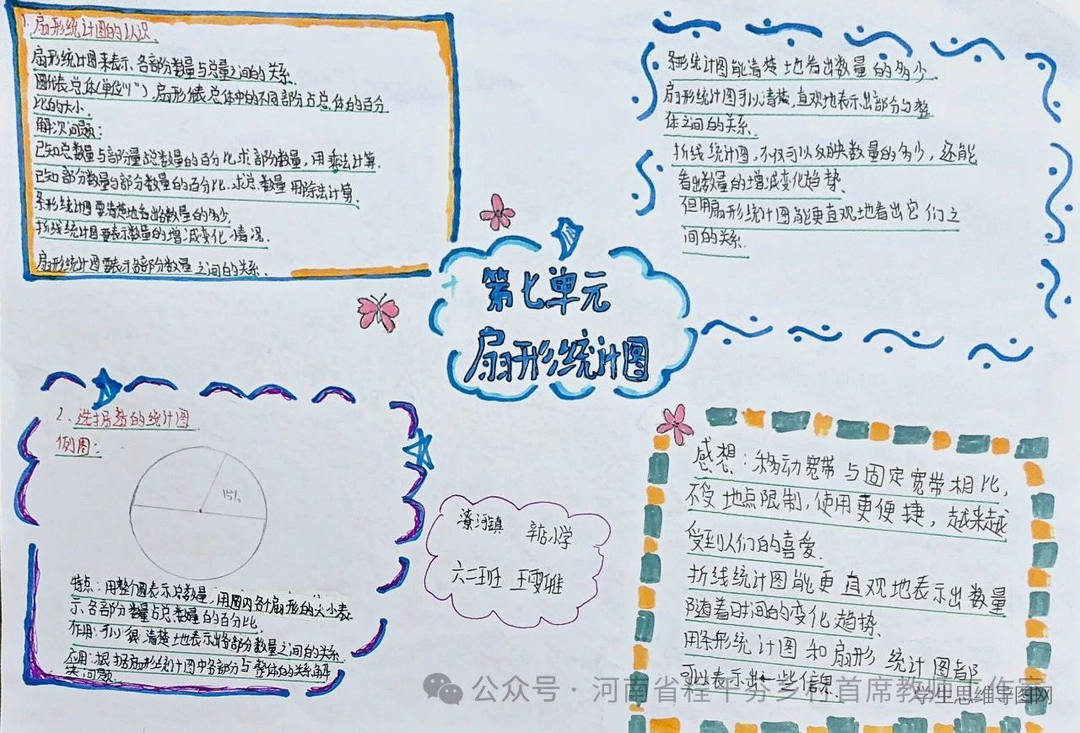 1.扇形统计图的认识
扇形统计图来表示各部分数量与总量之间的关系.
圆代表总体(单位"1"),扇形代表总体中的不同部分占总体的百分
比的大小.
解决问题:
已知总数量与部分量占总数量的百分比,求部分数量,用乘法计算.
已知部分数量与部分数量的百分比,求总数量用除法计算.
条形统计图要清楚地看出数量的多少.
折线统计图要表示数量的增减变化情况.
扇形统计图要表示各部分数量之间的关系.
条形统计图能清楚地看出数量的多少.
扇形统计图可以清楚,直观地表示出部分与整
体之间的关系.
折线统计图,不仅可以反映数量的多少,还能
看出数量的增减变化趋势.
但用扇形统计图能更直观地看出它们之
间的关系.
第七单元
扇形统计图
2.选择合适的统计图
例图:
15%
特点:用整个圆表示总数量,用圆内各个扇形的大小表
示各部分数量占总数量的百分比.
作用:可以很清楚地表示出各部分数量之间的关系
应用:根据扇形统计图中各部分与整体的关系解
决问题.
小学
六二班
感想:移动宽带与固定宽带相比,
不受地点限制,使用更便捷,越来越
受到人们的喜爱.
折线统计图能更直观地表示出数量
随着时间的变化趋势.
用条形统计图和扇形统计图都
可以表示出一些信息.
公众号·河南省程平芬乡村首席教师工作室
学生思维导图网